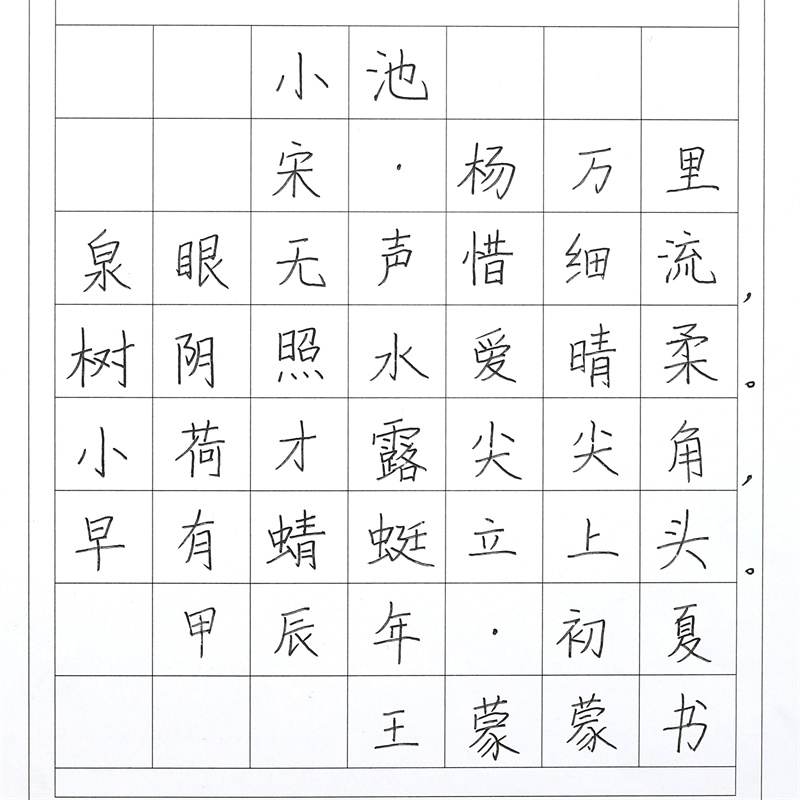 小池
宋·杨万里
泉眼无声惜细流，
树阴照水爱晴柔。
小荷才露尖尖角，
早有蜻蜓立上头。
甲辰年·初夏
王蒙蒙书